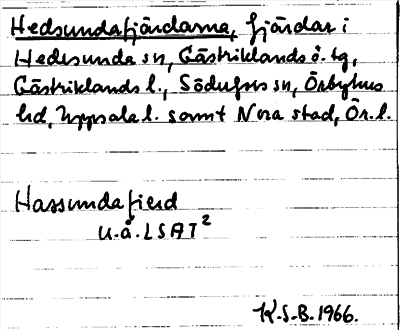 Hedesundafjärdarna, fjärdar i
Hedesunda sn, Gästriklands ö. tg,
Gästriklands l., Söderfors sn, Örbyhus
hd, Uppsala l. samt Nora stad, Ör. l.
Hassundafierd
u. å. LSAT²
K.S.B. 1966.